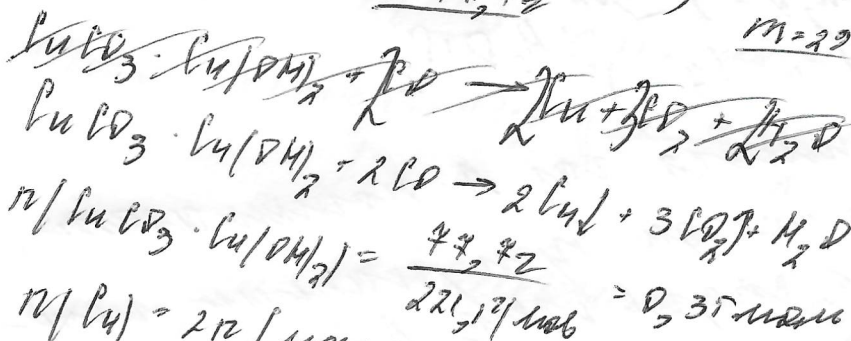 m=29
CuCO3 · Cu(OH)2 + 2CO → 2Cu + 3CO2 + 2H2O
CuCO3 · Cu(OH)2 + 2CO → 2Cu↓ + 3CO2↑ + H2O
n(CuCO3 · Cu(OH)2) = 77,7г / 221,1г/моль = 0,35 моль
n(Cu) = 2n(